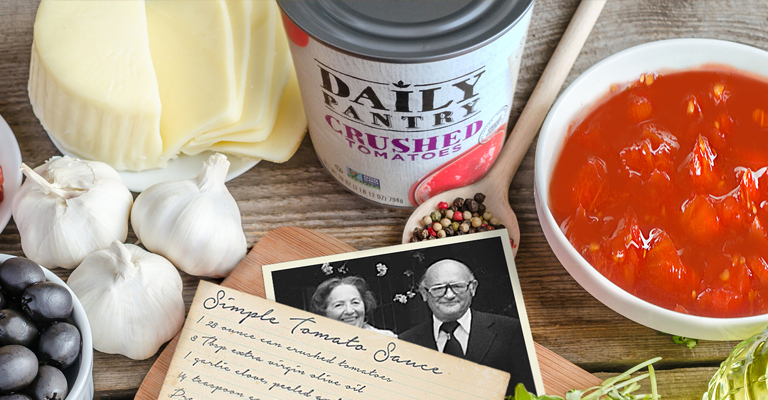 DAILY
PANTRY
CRUSHED
TOMATOES
Simple Tomato Sauce
1 28 ounce can crushed tomatoes
3 Tbsp extra virgin olive oil
1 garlic clove, peeled
¼ teaspoon